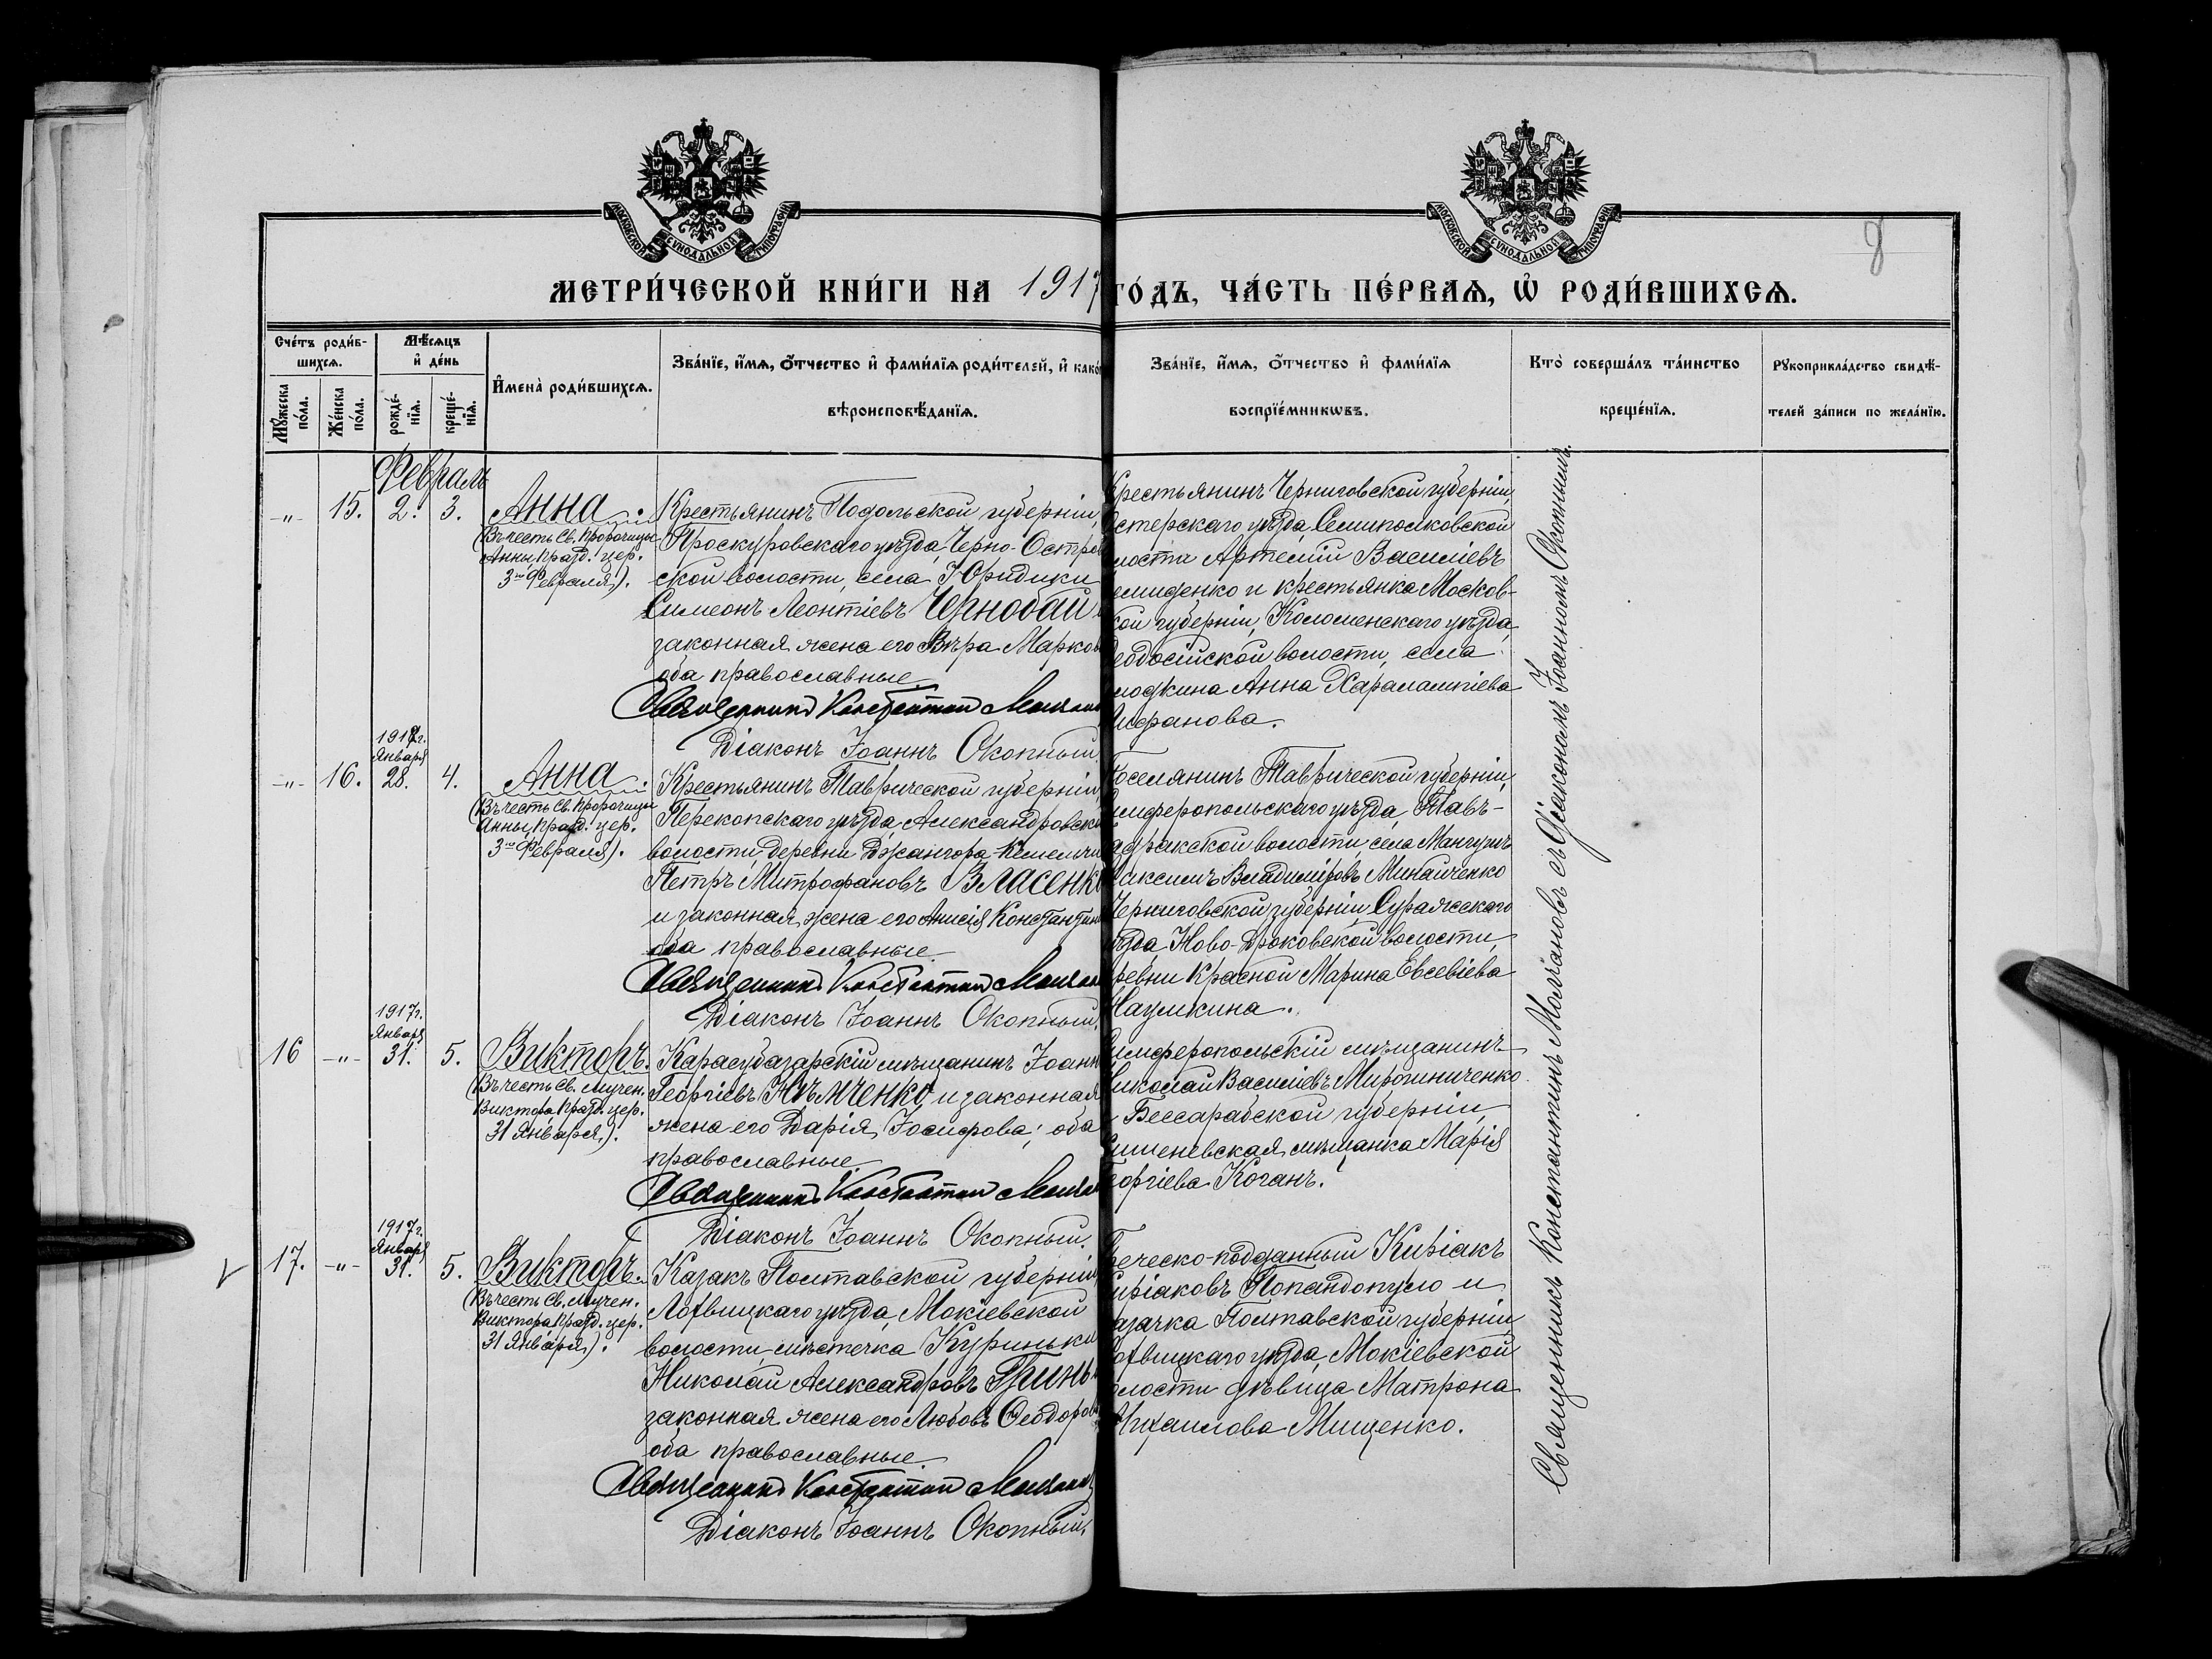 МОСКОВСКОЙ СѴНОДАЛЬНОЙ ТИПОГРАФІИ
МОСКОВСКОЙ СѴНОДАЛЬНОЙ ТИПОГРАФІИ
МЕТРИ́ЧЕСКОЙ КНИ́ГИ НА 1917
ГО́ДЪ, ЧА́СТЬ ПЕ́РВАѦ, Ѡ҆ РОДИ́ВШИХСѦ.
Сче́тъ роди́в-
шихсѧ.
Мꙋ́жеска по́ла.
Же́нска по́ла.
Мѣ́сѧцъ
и҆ де́нь
рожде́-
нїѧ.
креще́-
нїѧ.
И҆мена̀ роди́вшихсѧ.
Зва́нїе, и҆́мѧ, ѻ҆́тчество и҆ фами́лїѧ роди́телей, и҆ како
вѣроисповѣ́данїѧ.
Зва́нїе, и҆́мѧ, ѻ҆́тчество и҆ фами́лїѧ
воспрїе́мникѡвъ.
Кто̀ соверша́лъ та́инство
креще́нїѧ.
Рꙋкоприкла́дство свидѣ́-
телей за́писи по жела́нїю.
Февраль
-"- 15. 2. 3. Анна.
(Въ честь Св. Пророчицы
Анны, празд. цер.
3го Февраля).
Крестьянинъ Подольской губерніи,
Проскуровскаго уѣзда, Черно-Остро
ской волости, села Юридики
Симеонъ Леонтіевъ Чернобай
законная жена его Вѣра Марков
оба православные.
Священникъ Константин
Діаконъ Іоаннъ Окопный
рестьянинъ Черниговской губерніи,
стерскаго уѣзда, Семиполковской
лости Артемій Василіевъ
емиденко и крестьянка Москов-
кой губерніи, Коломенскаго уѣзда,
еодосійской волости, села
лодкина Анна Харалампіева
лифанова.
1917г.
Января
-"- 16. 28. 4. Анна.
(Въ честь Св. Пророчицы
Анны, празд. цер.
3го Февраля).
Крестьянинъ Таврической губерніи,
Перекопскаго уѣзда, Александровско
волости, деревни
Петръ Митрофановъ Власенк
и законная жена его Анисія Константин
оба православные.
Священникъ Константин
Діаконъ Іоаннъ Окопный.
оселянинъ Таврической губерніи,
имферопольскаго уѣзда, Тавъ-
адракской волости, села Мангушъ
аксимъ Владиміровъ Минайченко
Черниговской губерніи, Суражскаго
ѣзда, Ново-Дроковской волости,
ревни Красной Марина Евсевіева
Наумкина.
1917г.
Января
16 -"- 31. 5. Викторъ.
(Въ честь Св. мучен.
Виктора празд. цер.
31 Января).
Карасубазарскій мѣщанинъ Іоанн
Георгіевъ Нѣмченко и законная
жена его Дарія Іосифова; оба
православные.
Священникъ Константин
Діаконъ Іоаннъ Окопный.
имферопольскій мѣщанинъ
иколай Василіевъ Мирошниченко
Бессарабской губерніи,
ишеневская мѣщанка Марія
еоргіева Коганъ.
1917г.
Января
17. -"- 31. 5. Викторъ.
(Въ честь Св. мучен.
Виктора празд. цер.
31 Января).
Казакъ Полтавской губерніи,
Лохвицкаго уѣзда, Мокіевской
волости, мѣстечка Куриньки
Николай Александровъ Гринь
законная жена его Любовь Ѳеодоров
оба православные.
Священникъ Константин
Діаконъ Іоаннъ Окопный.
реческо-подданный Киріакъ
иріаковъ Попандопуло и
азачка Полтавской губерніи,
охвицкаго уѣзда, Мокіевской
олости дѣвица Матрона
Михаилова Мищенко.
Священникъ Константинъ Молчановъ съ Діакономъ Іоанномъ Окопнымъ.